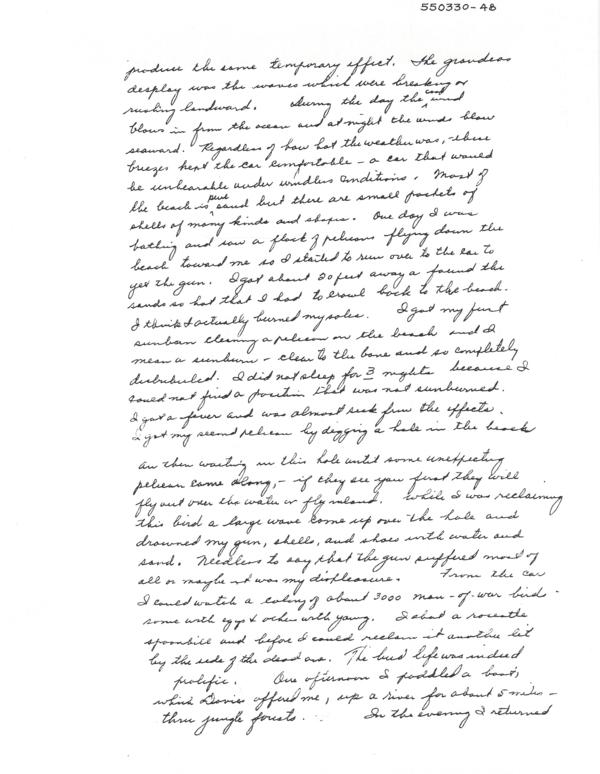 550330-4B
produce the same temporary effect. The grandeos
display was the waves which were breaking or
rushing landward. During the day the cool wind
blows in from the ocean and at night the winds blow
seaward. Regardless of how hot the weather was, - these
breezes kept the car comfortable - a car that would
be unbearable under windless conditions. Most of
the beach is pure sand but there are small pockets of
shells of many kinds and shapes. One day I was
bathing and saw a flock of pelicans flying down the
beach toward me so I started to run over to the car to
get the gun. I got about 20 feet away a found the
sands so hot that I had to crawl back to the beach.
I think I actually burned my soles. I got my first
sunburn cleaning a pelican on the beach and I
mean a sunburn - clear to the bone and so completely
distributed. I did not sleep for 3 nights because I
could not find a position that was not sunburned.
I got a fever and was almost sick from the effects.
I got my second pelican by digging a hole in the beach
an then waiting in this hole until some unexpecting
pelican came along, - if they see you first they will
fly out over the water or fly inland. While I was reclaiming
this bird a large wave come up over the hole and
drowned my gun, shells, and shoes with water and
sand. Needless to say that the gun suffered most of
all or maybe it was my displeasure. From the car
I could watch a colony of about 3000 man-of-war birds -
some with eggs & others with young. I shot a roseatte
spoonbill and before I could reclaim it another lit
by the side of the dead one. The bird life was indeed
prolific. One afternoon I paddled a boat,
which Davies offered me, up a river for about 5 miles -
thru jungle forests... In the evening I returned